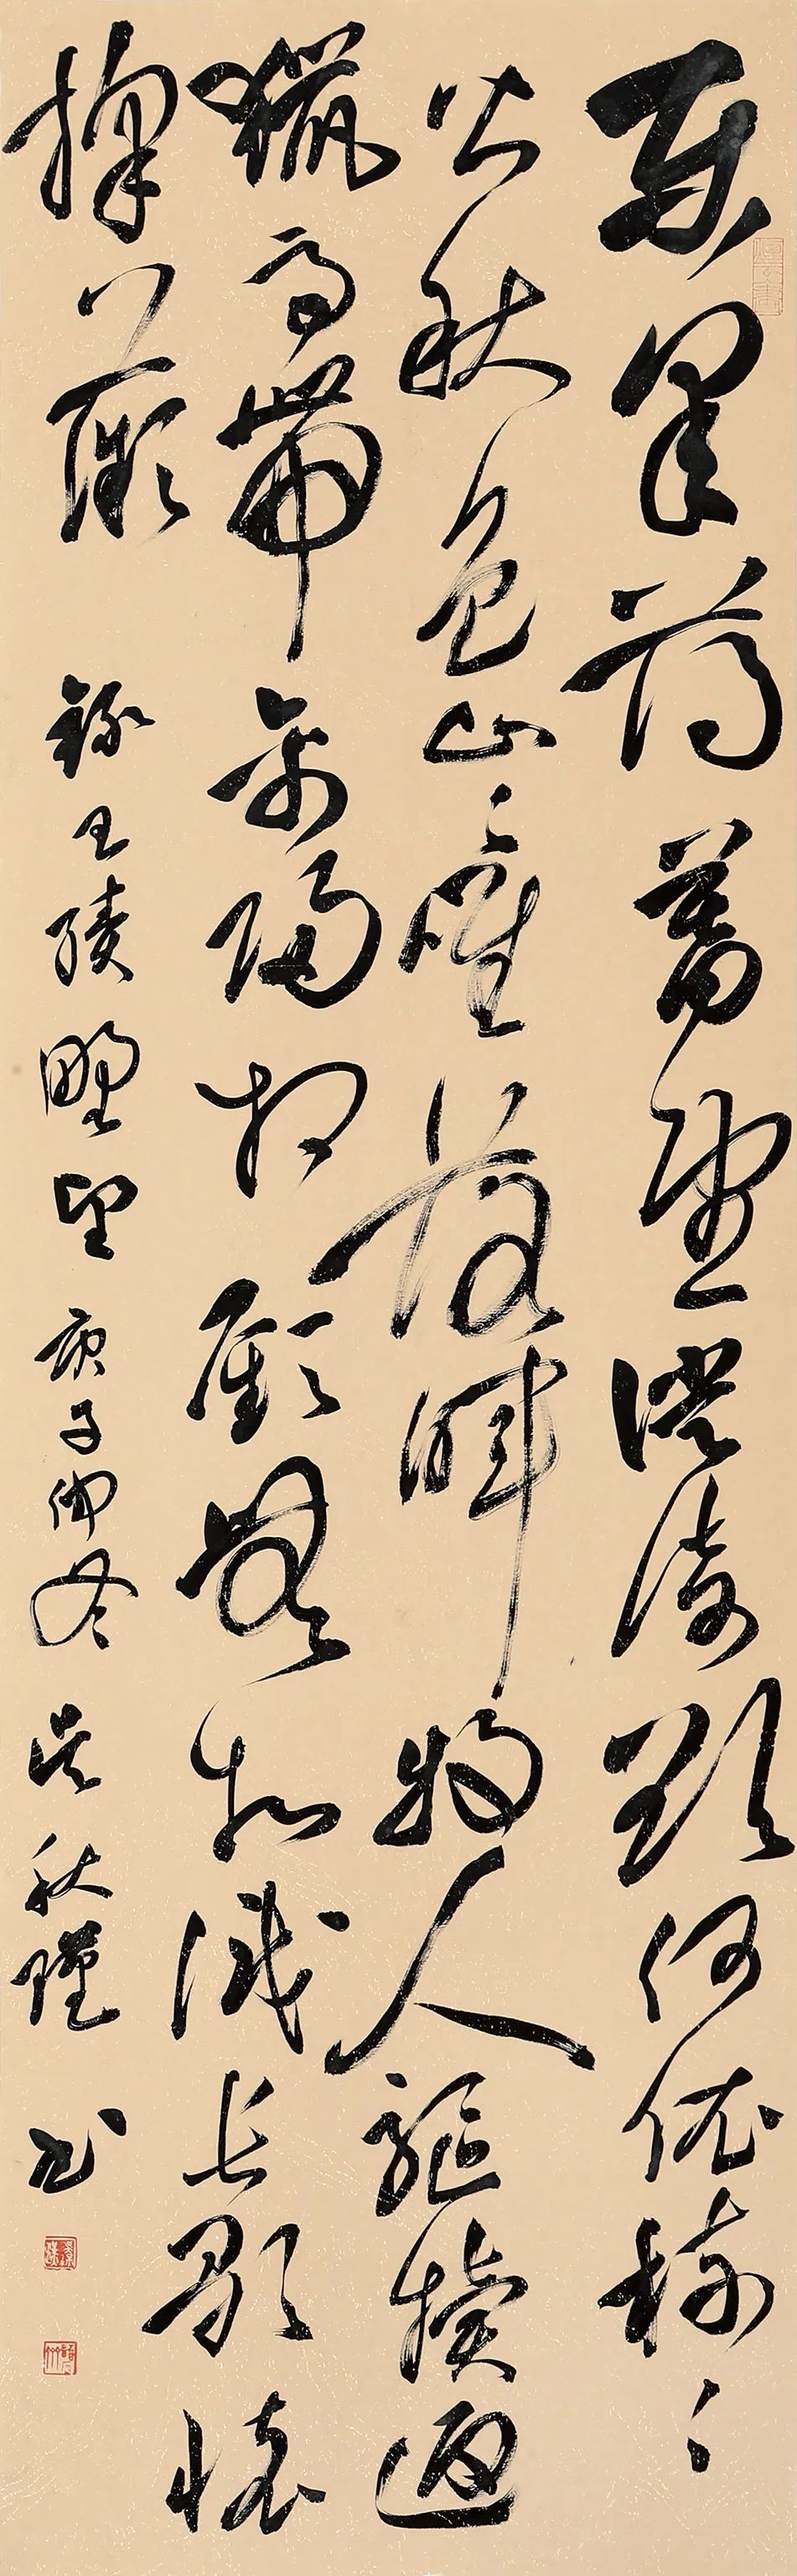 東皋薄暮望徙倚欲何依樹〻
皆秋色山〻唯落暉牧人驅犢返
獵馬帶禽歸相顧無相識長歌懷
採薇 錄王績野望 庚子仲冬 吳秋瑾書